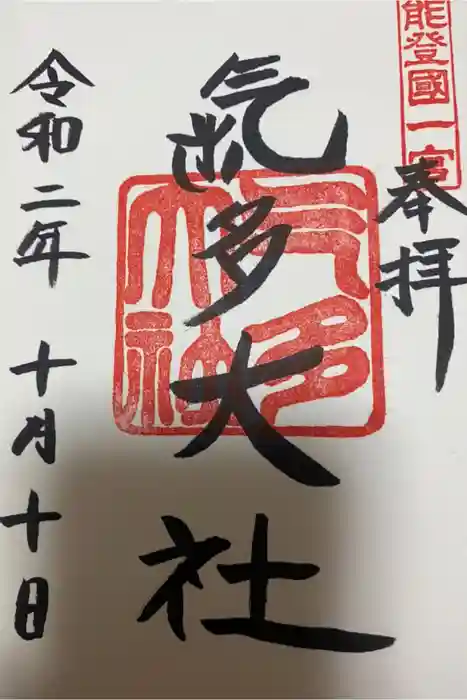 能登國一宮
奉拝
氣多大社
氣多大社
令和二年 十月十日